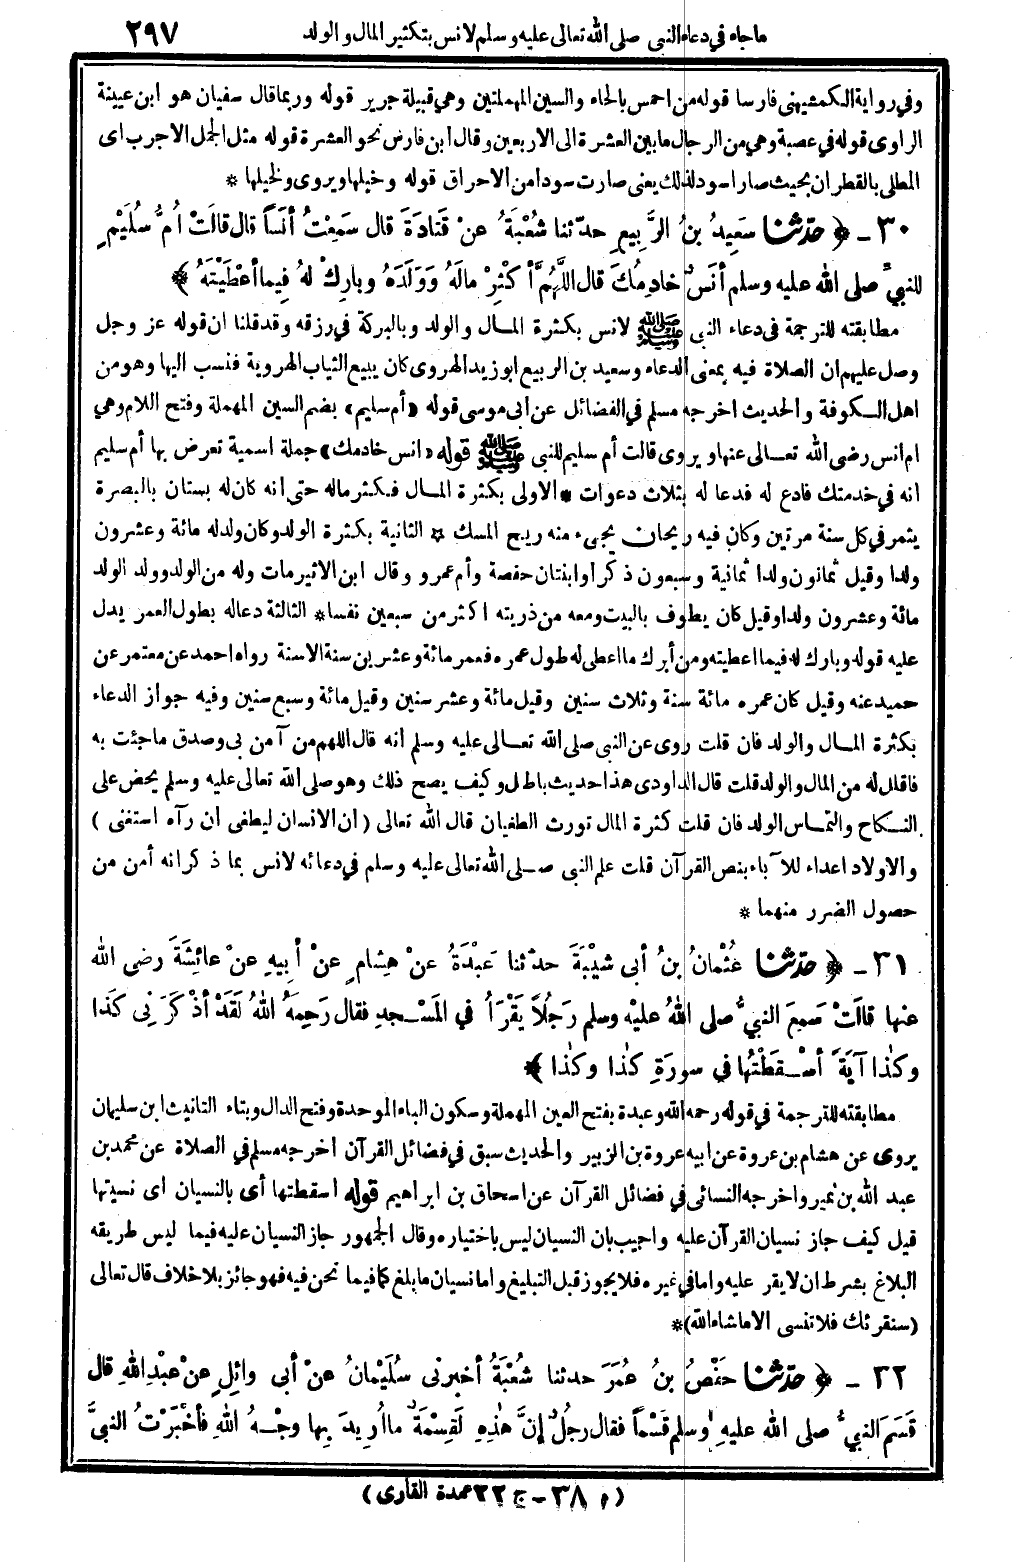 ماجاء في دعاء النبي صلى الله تعالى عليه وسلم لانس بتكثير المال والولد ٢٩٧
وفي رواية الكمشيهني فارسا قوله من احمس بالحاء والسين المهملتين وهي قبيلة جرير قوله وربما قال سفيان هو ابن عيينة
الراوى قوله في عصبة وهي من الرجال مابين العشرة الى الاربعين وقال ابن فارض نحو العشرة قوله مثل الجمل الاجرب اى
المطلى بالقطران بحيث صار اسود لذلك يعنى صارت سودا من الاحراق قوله وخيلها ويروى ولخيلها *
٣٠ - ﴿ حدّثنا سَعِيدُ بنُ الرَّبِيعِ حدّثنا شُعْبَةُ عنْ قَتادَةَ قال سَمِعْتُ أنَساً قال قالَتْ اُمُّ سُلَيْمٍ
للنبيِّ صلى الله عليه وسلم أنَسٌ خادِمُكَ قال اللَّهُمَّ أكْثِرْ مالَهُ وَوَلَدَهُ وبارِكْ لهُ فِيما أعْطَيْتَهُ ﴾
مطابقته للترجمة فى دعاء النبى ﷺ لانس بكثرة المال والولد وبالبركة في رزقه وقد قلنا ان قوله عز وجل
وصل عليهم ان الصلاة فيه بمعنى الدعاء وسعيد بن الربيع ابو زيد الهروى كان يبيع الثياب الهروية فنسب اليها وهو من
اهل الكوفة والحديث اخرجه مسلم في الفضائل عن ابى موسى قوله «أم سليم» بضم السين المهملة وفتح اللام وهي
ام انس رضى الله تعالى عنها ويروى قالت أم سليم للنبى ﷺ قوله «انس خادمك» جملة اسمية تعرض بها أم سليم
انه في خدمتك فادع له فدعا له بثلاث دعوات * الاولى بكثرة المال فكثر ماله حتى انه كان له بستان بالبصرة
يثمر في كل سنة مرتين وكان فيه ريحان يجىء منه ريح المسك * الثانية بكثرة الولد وكان ولد له مائة وعشرون
ولدا وقيل ثمانون ولدا ثمانية وسبعون ذكرا وابنتان حفصة وأم عمرو وقال ابن الاثير مات وله من الولد وولد الولد
مائة وعشرون ولدا وقيل كان يطوف بالبيت ومعه من ذريته اكثر من سبعين نفسا * الثالثة دعا له بطول العمر يدل
عليه قوله وبارك له فيما اعطيته ومن أبرك ما اعطى له طول عمره فعمر مائة وعشرين سنة الا سنة رواه احمد عن معتمر عن
حميد عنه وقيل كان عمره مائة سنة وثلاث سنين وقيل مائة وعشر سنين وقيل مائة وسبع سنين وفيه جواز الدعاء
بكثرة المال والولد فان قلت روى عن النبى صلى الله تعالى عليه وسلم انه قال اللهم من آمن بى وصدق ماجئت به
فاقلل له من المال والولد قلت قال الداودى هذا حديث باطل وكيف يصح ذلك وهو صلى الله تعالى عليه وسلم يحض على
النكاح والتماس الولد فان قلت كثرة المال تورث الطغيان قال الله تعالى (ان الانسان ليطغى ان رآه استغنى)
والاولاد اعداء للآباء بنص القرآن قلت علم النبى صلى الله تعالى عليه وسلم في دعائه لانس بما ذكر انه أمن من
حصول الضرر منهما *
٣١ - ﴿ حدّثنا عُثْمانُ بنُ أبى شَيْبَةَ حدثنا عَبْدَةُ عنْ هِشامٍ عنْ أبِيهِ عنْ عائِشَةَ رضى الله
عنها قالَتْ سَمِعَ النبيُّ صلى اللهُ عليْه وسلم رَجُلاً يَقْرَأُ في المَسْجِدِ فقال رَحِمَهُ اللهُ لَقَدْ أذْكَرَنِى كَذا
وكَذا آيَةً أسْقَطْتُها في سورَةِ كَذا وكَذا ﴾
مطابقته للترجمة في قوله رحمه الله وعبدة بفتح العين المهملة وسكون الباء الموحدة وفتح الدال وبتاء التانيث ابن سليمان
يروى عن هشام بن عروة عن ابيه عروة بن الزبير والحديث سبق في فضائل القرآن اخرجه مسلم في الصلاة عن محمد بن
عبد الله بن نمير واخرجه النسائى في فضائل القرآن عن اسحاق بن ابراهيم قوله اسقطتها أى بالنسيان اى نسيتها
قيل كيف جاز نسيان القرآن عليه واجيب بان النسيان ليس باختياره وقال الجمهور جاز النسيان عليه فيما ليس طريقه
البلاغ بشرط ان لا يقر عليه واما في غيره فلا يجوز قبل التبليغ واما نسيان ما بلغ كما فيما نحن فيه فهو جائز بلا خلاف قال تعالى
(سنقرئك فلا تنسى الا ماشاء الله) *
٣٢ - ﴿ حدّثنا حَفْصُ بنُ عُمَرَ حدثنا شُعْبَةُ أخبرنى سُلَيْمانُ عنْ أبى وائِلٍ عنْ عبْدِ اللهِ قال
قَسَمَ النبيُّ صلى الله عليهِ وسلم قَسْماً فقال رجُلٌ إنَّ هٰذِهِ لَقِسْمَةٌ ما اُرِيدَ بِها وجْهُ اللهِ فأخْبَرْتُ النبيَّ
(م ٣٨ - ج ٢٢ عمدة القارى)